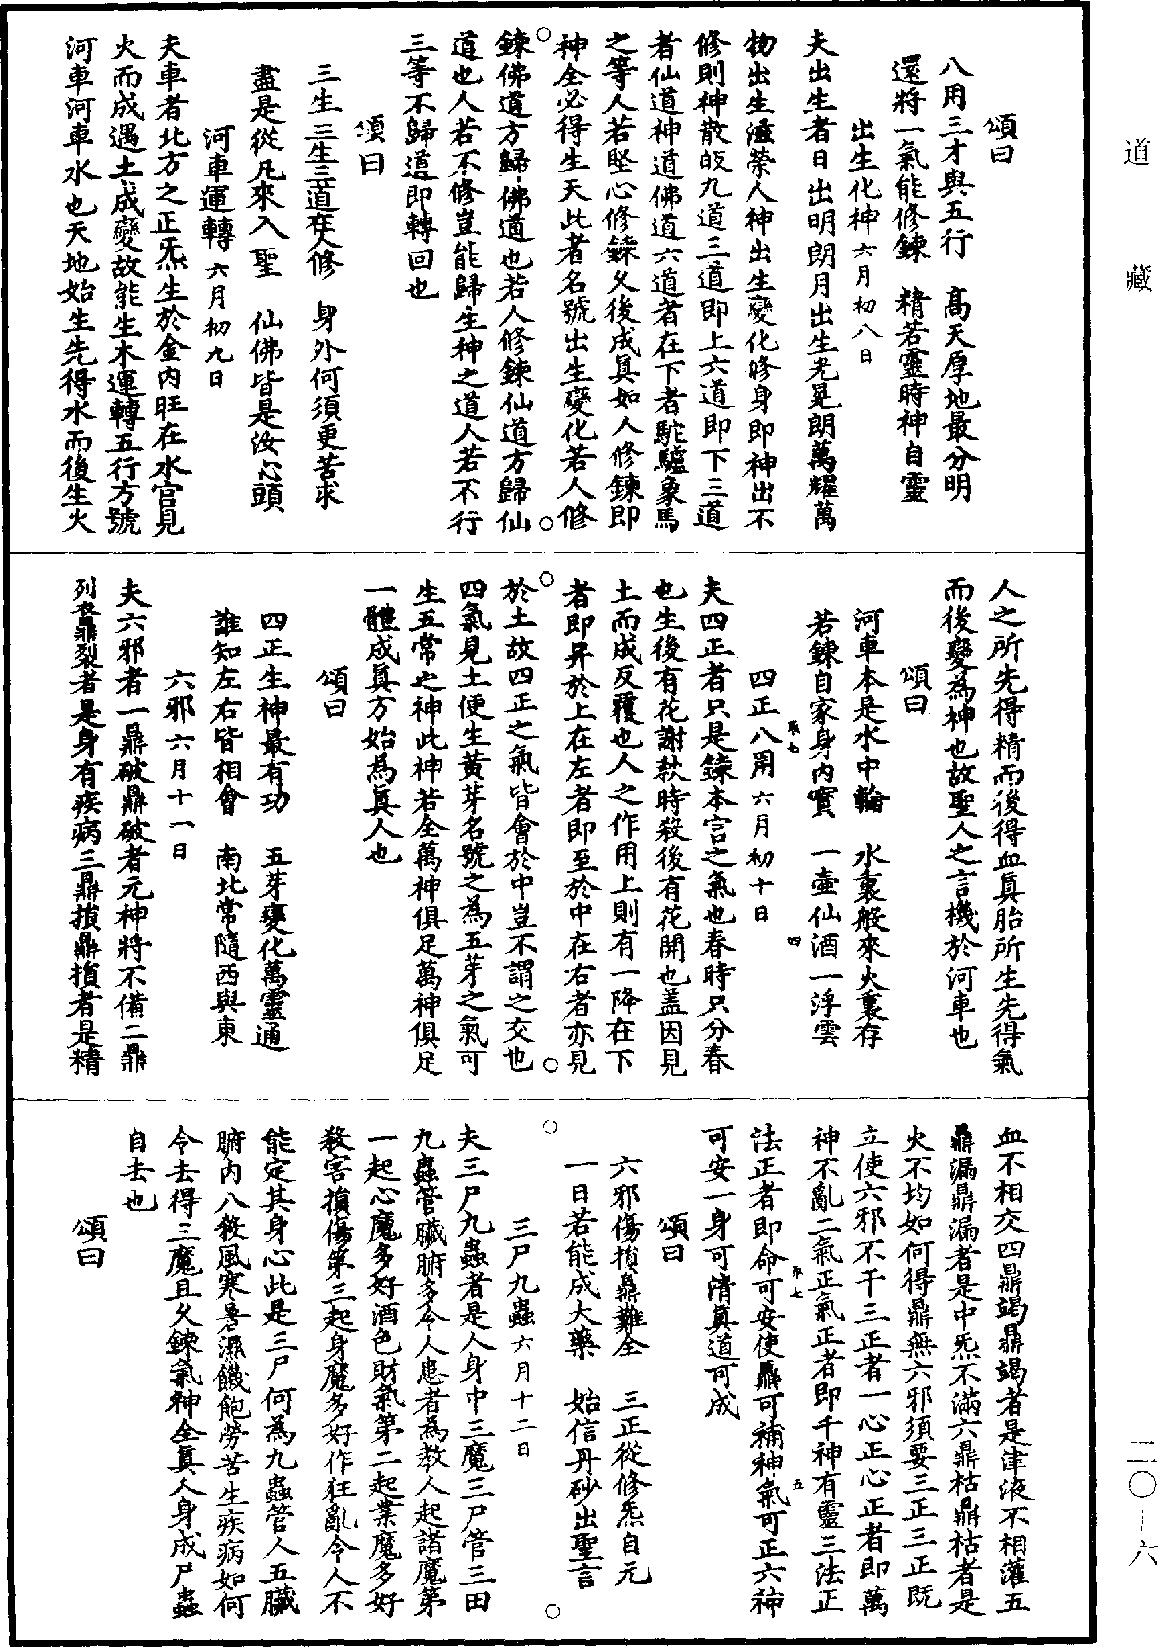 頌曰
八用三才與五行　高天厚地最分明
還將一氣能修鍊　精若靈時神自靈
出生化神六月初八日
夫出生者日出明朗月出生光晃朗萬耀萬
物出生滋榮人神出生變化修身即神出不
修則神散故九道三道即上六道即下三道
者仙道神道佛道六道者在下者駝驢象馬
之等人若堅心修鍊久後成真如人修鍊即
神全必得生天此者名號出生變化若人修
鍊佛道方歸佛道也若人修鍊仙道方歸仙
道也人若不修豈能歸生神之道人若不行
三等不歸道即轉回也
頌曰
三生三生三道在人修　身外何須更苦求
盡是從凡來入聖　仙佛皆是汝心頭
河車運轉六月初九日
夫車者北方之正炁生於金內旺在水宮見
火而成遇土成變故能生木運轉五行方號
河車河車水也天地始生先得水而後生火
人之所先得精而後得血真胎所生先得氣
而後變為神也故聖人之言機於河車也
頌曰
河車本是水中輪　水裏般來火裏存
若鍊自家身內寶　一壺仙酒一浮雲
四正八用六月初十日
夫四正者只是鍊本言之氣也春時只分春
也生後有花謝秋時殺後有花開也盖因見
土而成反覆也人之作用上則有一降在下
者即昇於上在左者即至於中在右者亦見
於土故四正之氣皆會於中豈不謂之交也
四氣見土便生黃芽名號之為五芽之氣可
生五常之神此神若全萬神俱足萬神俱足
一體成真方始為真人也
頌曰
四正生神最有功　五芽變化萬靈通
誰知左右皆相會　南北常隨西與東
六邪六月十一日
夫六邪者一鼎破鼎破者元神將不備二鼎
列鼎裂者是身有疾病三鼎損鼎損者是精
血不相交四鼎竭鼎竭者是津液不相灌五
鼎漏鼎漏者是中炁不滿六鼎枯鼎枯者是
火不均如何得鼎無六邪須要三正三正既
立使六邪不干三正者一心正心正者即萬
神不亂二氣正氣正者即千神有靈三法正
法正者即命可安使鼎可補神氣可正六神
可安一身可清真道可成
頌曰
六邪傷損鼎難全　三正從修炁自元
一日若能成大藥　始信丹砂出聖言
三尸九蟲六月十二日
夫三尸九蟲者是人身中三魔三尸管三田
九蟲管臟腑多令人患者為教人起諸魔第
一起心魔多好酒色財氣第二起業魔多好
殺害損傷第三起身魔多好作狂亂令人不
能定其身心此是三尸何為九蟲管人五臟
腑內八殺風寒暑濕饑飽勞苦生疾病如何
令去得三魔且久鍊氣神全真人身成尸蟲
自去也
頌曰
道藏
二〇－六